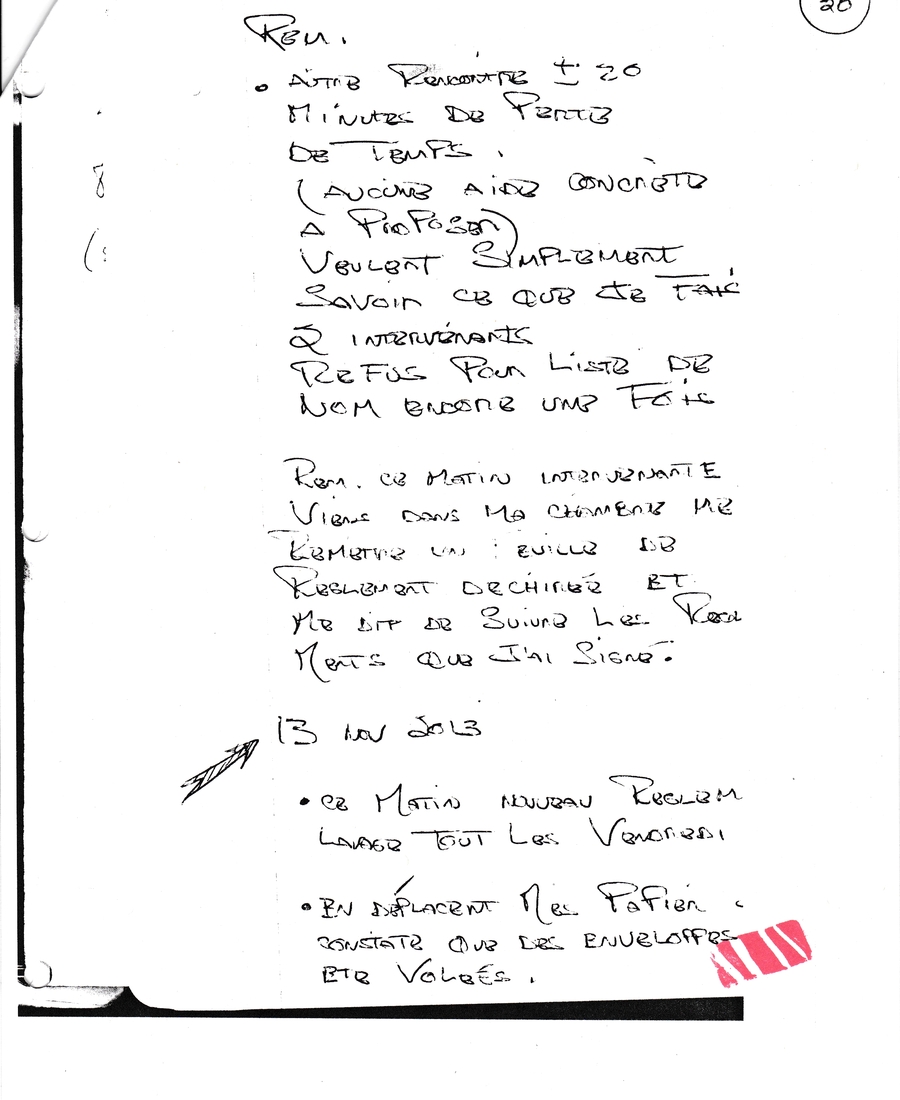 20
REM.
• AUTRE RENCONTRE ± 20
MINUTES DE PERTE
DE TEMPS.
(AUCUNE AIDE CONCRÈTE
A PROPOSER)
VEULENT SIMPLEMENT
SAVOIR CE QUE JE FAIS
2 INTERVENANTS
REFUS POUR LISTE DE
NOM ENCORE UNE FOIS
REM. CE MATIN INTERVENANTE
VIENS DANS MA CHAMBRE ME
REMETRE UN EUILLE DE
REGLEMENT DECHIREE ET
ME DIT DE SUIVRE LES REGL
MENTS QUE J'AI SIGNÉ.
13 NOV 2013
• CE MATIN NOUVEAU REGLEM
LAVAGE TOUT LES VENDREDI
• EN DÉPLACENT MES PAPIER
CONSTATE QUE DES ENVELOPPES
ETE VOLEÉS.